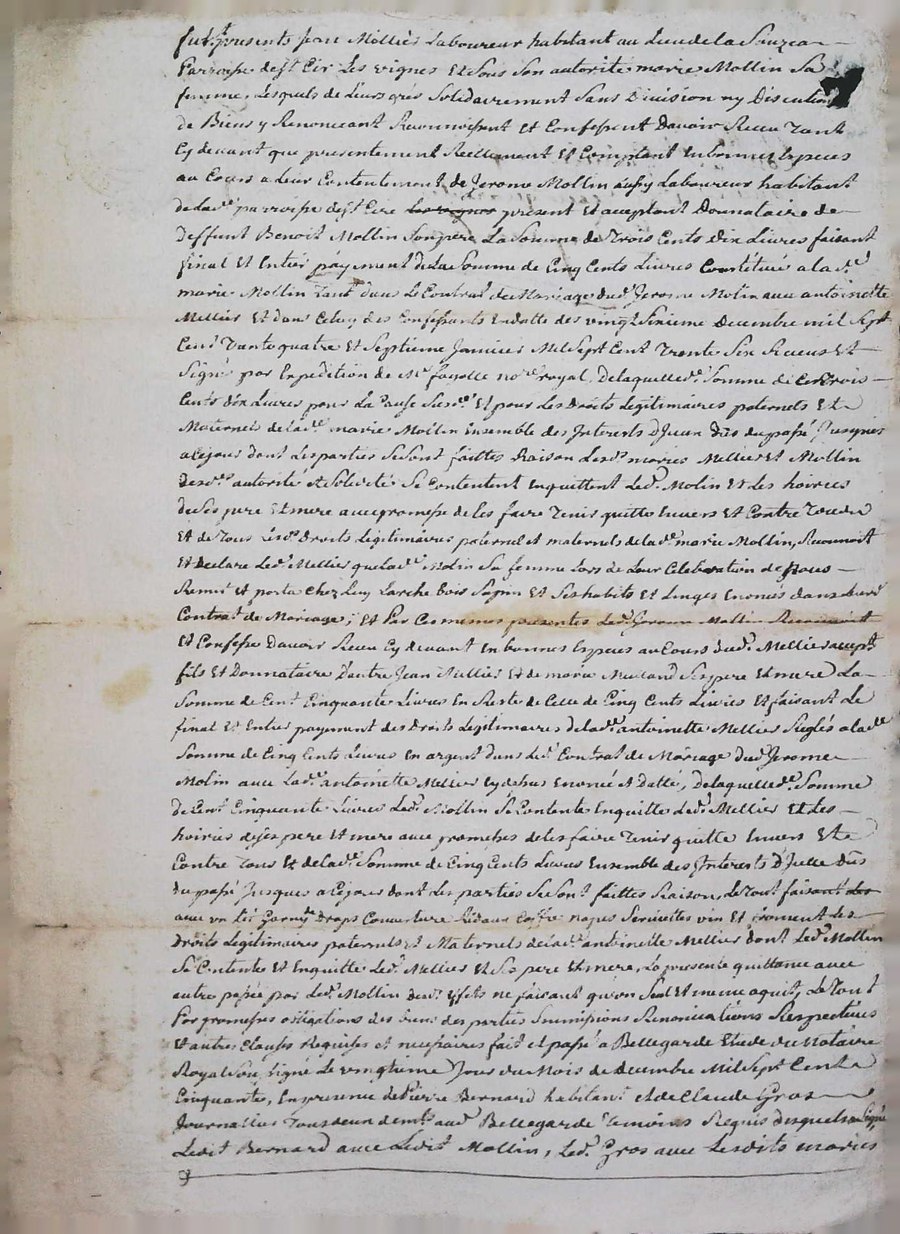 fut présents Jean Melliès Laboureur habitant au Lieu de la
Parroisse de st Cir Les vignes Et Sous Son autorité marie Mollin Sa
femme, Lesquels de Leurs grés Solidairement Sans Division ny Discution
de Biens y Renonceant Reconnoissent Et Confessent Davoir Receu Tant
Cy devant que presentement Réellement Et Comptant En bonnes Especes
au Cours a Leur Contentement, de Jerome Mollin aussy Laboureur habitant
de lad.e parroisse de st Cire les vignes présent Et acceptant Donnataire de
Deffunt Benoit Mollin Son pere La Somme de Trois Cents dix Livres faisant
final Et Entier payement de la Somme de Cinq Cents Livres Constituée a lad.e
marie Mollin Tant dans Le Contrat de Mariage dud. Jerome Molin avec antoinette
Melliés Et dans Celuy des Confessants En datte des vingt Sixieme Decembre mil Sept
Cent Trante quatre Et Septieme Janvier Mil Sept Cent Trente Six Receus Et
Signé par Expedition de Me fayolle no.re royal, De laquelle d.e Somme de Trois
Cents dix Livres pour La Cause Susd.e Et pour Les Droits Legitimaires paternels Et
Maternels de lad.e marie Mollin Ensemble des Interests Dijceux dûs du passé Jusques
a Cejour dont Les parties Se Sont faittes Raison Lesd.s mariés Mellier Et Mollin
desd.es autorité Et Solidité Se Contentent En quittent Led. Molin Et Les hoiries
de Ses pere Et mere avec promesse de Les faire Tenir quitte Envers Et Contre Tous
Et de Tous Lesd. Droits Legitimaires paternel et maternels de lad.e marie Mollin, Reconnoit
Et Declare Led. Mellier que lad.e Molin Sa femme Lors de Leur Celebration de Nous
Remit Et porta Chez Luy Larche bois Sapin Et Ses habits Et Linges Enoncés dans Leurd.
Contrat de Mariage; Et Par Ces memes presentes Led. Jerome Mollin Reconnoit
Et Confesse Davoir Receu Cy devant En bonnes Especes au Cours dud. Mellier accept.t
fils Et Donnataire Dautre Jean Mellier Et de marie Ses pere Et mere La
Somme de Cent Cinquante Livres En Reste de Celle de Cinq Cents Livres Et faisant Le
final Et Entier payement des Droits Legitimaires de lad.e antoinette Mellier Reglés a lad.e
Somme de Cinq Cents Livres En argent dans Led. Contrat de Mariage dud. Jerome
Molin avec Lad.e antoinette Mellier Cy dessus Enoncé Et Datté, De laquelle d.e Somme
De Cent Cinquante Livres Led. Mollin Se Contente En quitte Led. Mellier Et Les
hoiries de Ses pere Et mere avec promesses de Les faire Tenir quitte Envers Et
Contre Tous Et de lad.e Somme de Cinq Cents Livres Ensemble des Interests D'Jcelle Dûs
du passé Jusques a Cejour dont Les parties Se Sont faittes Raison, Le Tout faisant des
avec un Lit Garny Draps Couverture Rideaux Coffre napes Serviettes vin Et froment des
Droits Legitimaires paternels Et Maternels de lad.e antoinette Mellier dont Led. Mollin
Se Contente Et En quitte Led. Mellier Et Ses pere Et mere, La presente quittance avec
autre passée par Led. Mollin desd. Effets ne faisant qu'un Seul Et meme aquit, Le Tout
Par promesses obligations des biens des parties Soumissions Renonciations Respectives
Et autres Clauses Requises et necessaires fait et passé a Bellegarde Etude du Notaire
Royal Sou, signé Le vingtieme Jour du Mois de decembre Mil Sept Cent
Cinquante, En presence de Pierre Bernard habitant et de Claude Gros
Journalier Tous deux dem.ts aud. Bellegarde Temoins Requis desquels a Signé
Ledit Bernard avec Ledit Mollin, Led. Gros avec Lesdits mariés